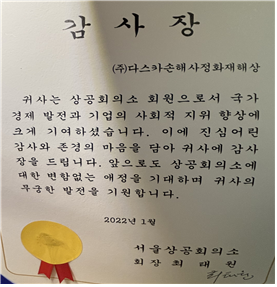 감사장
(주)다스카손해사정화재해상
귀사는 상공회의소 회원으로서 국가
경제 발전과 기업의 사회적 지위 향상에
크게 기여하셨습니다. 이에 진심어린
감사와 존경의 마음을 담아 귀사에 감사
장을 드립니다. 앞으로도 상공회의소에
대한 변함없는 애정을 기대하며 귀사의
무궁한 발전을 기원합니다.
2022년 1월
서울상공회의소
회장 최태원